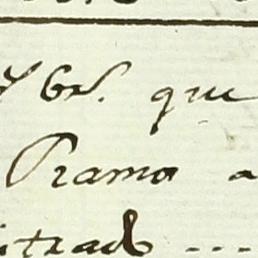 y Gs. que
Ramo a
itrad ---